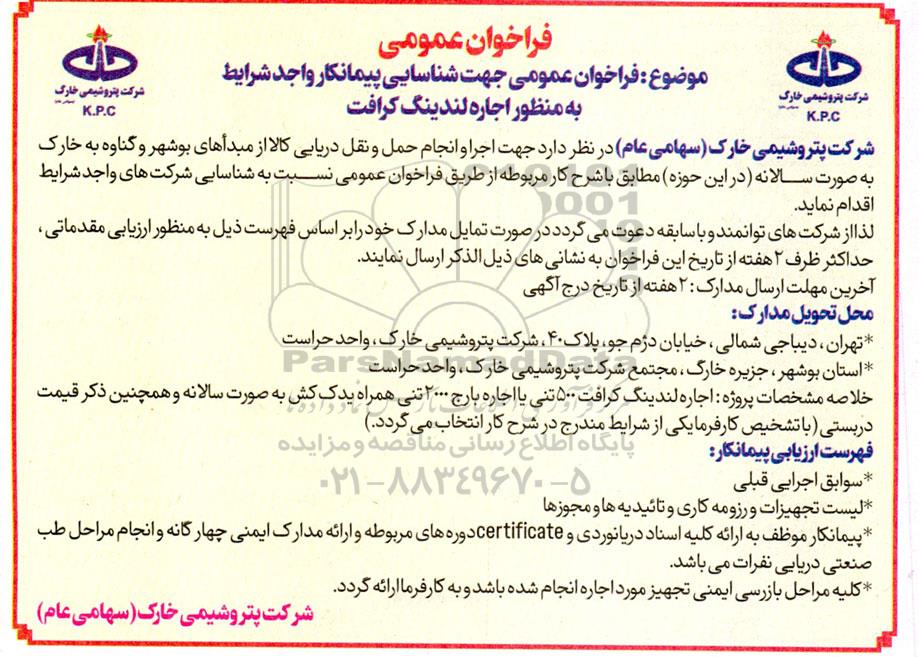 فراخوان عمومی
موضوع : فراخوان عمومی جهت شناسایی پیمانکار واجد شرایط
به منظور اجاره لندینگ کرافت
شرکت پتروشیمی خارک
K.P.C
شرکت پتروشیمی خارک
K.P.C
شرکت پتروشیمی خارک (سهامی عام) در نظر دارد جهت اجرا و انجام حمل و نقل دریایی کالا از مبدأهای بوشهر و گناوه به خارک
به صورت سالانه (در این حوزه) مطابق با شرح کار مربوطه از طریق فراخوان عمومی نسبت به شناسایی شرکت های واجد شرایط
اقدام نماید.
لذا از شرکت های توانمند و با سابقه دعوت می گردد در صورت تمایل مدارک خود را بر اساس فهرست ذیل به منظور ارزیابی مقدماتی ،
حداکثر ظرف ۲ هفته از تاریخ این فراخوان به نشانی های ذیل الذکر ارسال نمایند.
آخرین مهلت ارسال مدارک : ۲ هفته از تاریخ درج آگهی
محل تحویل مدارک :
*تهران ، دیباجی شمالی ، خیابان دژم جو، پلاک ۴۰ ، شرکت پتروشیمی خارک ، واحد حراست
*استان بوشهر ، جزیره خارگ ، مجتمع شرکت پتروشیمی خارک ، واحد حراست
خلاصه مشخصات پروژه : اجاره لندینگ کرافت ۵۰۰ تنی یا اجاره بارج ۲۰۰۰ تنی همراه یدک کش به صورت سالانه و همچنین ذکر قیمت
دربستی (با تشخیص کارفرما یکی از شرایط مندرج در شرح کار انتخاب می گردد.)
فهرست ارزیابی پیمانکار:
*سوابق اجرایی قبلی
*لیست تجهیزات و رزومه کاری و تائیدیه ها و مجوزها
*پیمانکار موظف به ارائه کلیه اسناد دریانوردی و certificate دوره های مربوطه و ارائه مدارک ایمنی چهار گانه و انجام مراحل طب
صنعتی دریایی نفرات می باشد.
*کلیه مراحل بازرسی ایمنی تجهیز مورد اجاره انجام شده باشد و به کارفرما ارائه گردد.
شرکت پتروشیمی خارک (سهامی عام)
ParsNamadData
پایگاه اطلاع رسانی مناقصه و مزایده
۰۲۱-۸۸۳۴۹۶۷۰-۵